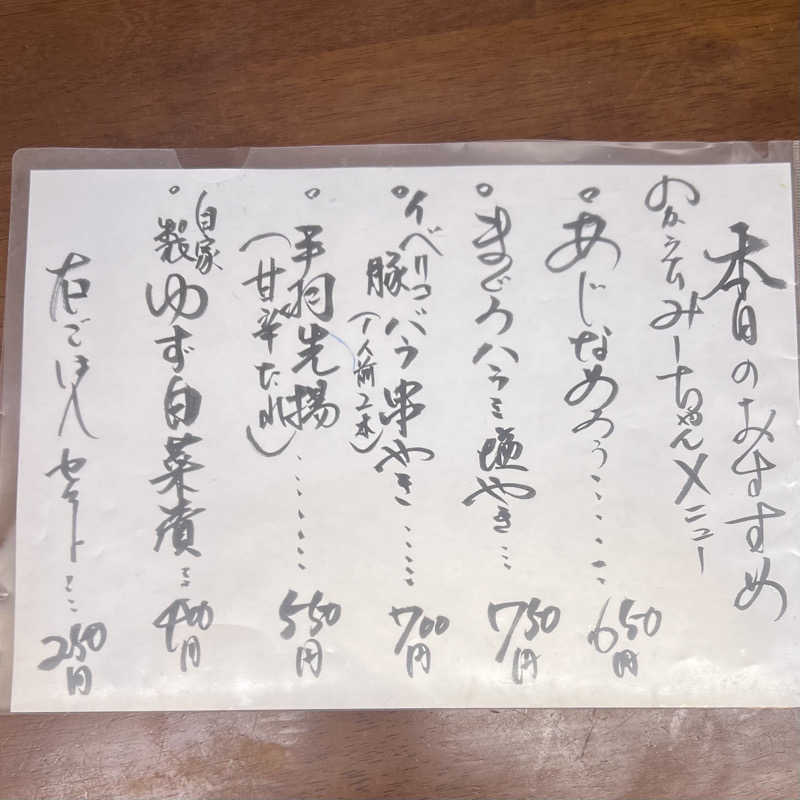 本日のおすすめ
みーちゃんメニュー
○ あじなめろう…… 650円
○ まぐろハラミ塩やき… 750円
○ イベリコ豚バラ串やき…… 700円
(1人前2本)
○ 手羽先揚…… 550円
(甘辛たれ)
○ 自家製ゆず白菜漬… 400円
ごはんセット… 250円